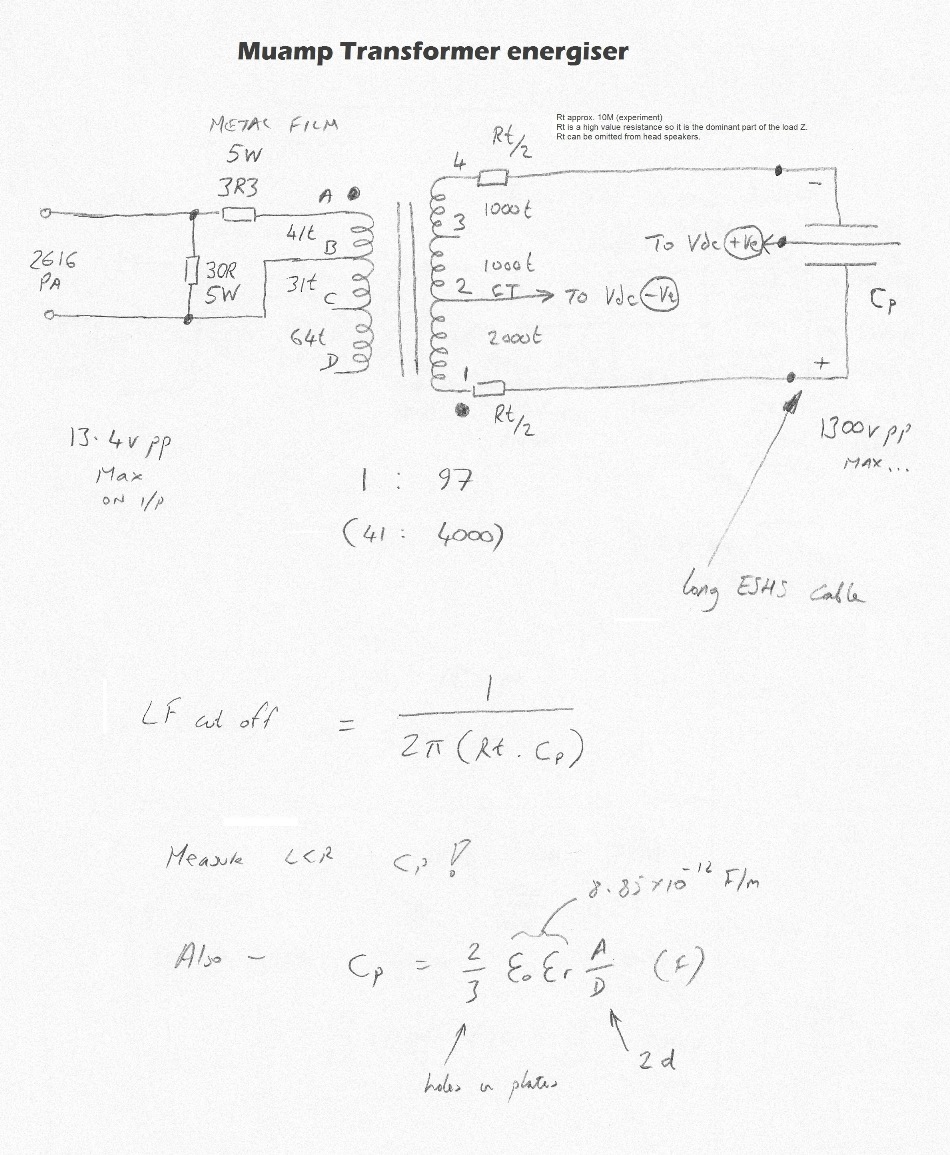 Muamp Transformer energiser
Rt approx. 10M (experiment)
Rt is a high value resistance so it is the dominant part of the load Z.
Rt can be omitted from head speakers.
METAL FILM
5W
3R3
2616
PA
30R
5W
A
41t
B
31t
C
64t
D
4
Rt/2
1000t
3
1000t
2 CT
To Vdc -Ve
2000t
1
Rt/2
-
To Vdc +Ve
Cp
+
13.4v pp
Max
ON I/P
1300v pp
MAX...
1 : 97
(41 : 4000)
long ESHS cable
LF cut off = 1
2π (Rt . Cp)
Measure LCR Cp !
8.85 x 10⁻¹² F/m
Also - Cp = 2/3 εo εr A/D (F)
2d
holes in plates